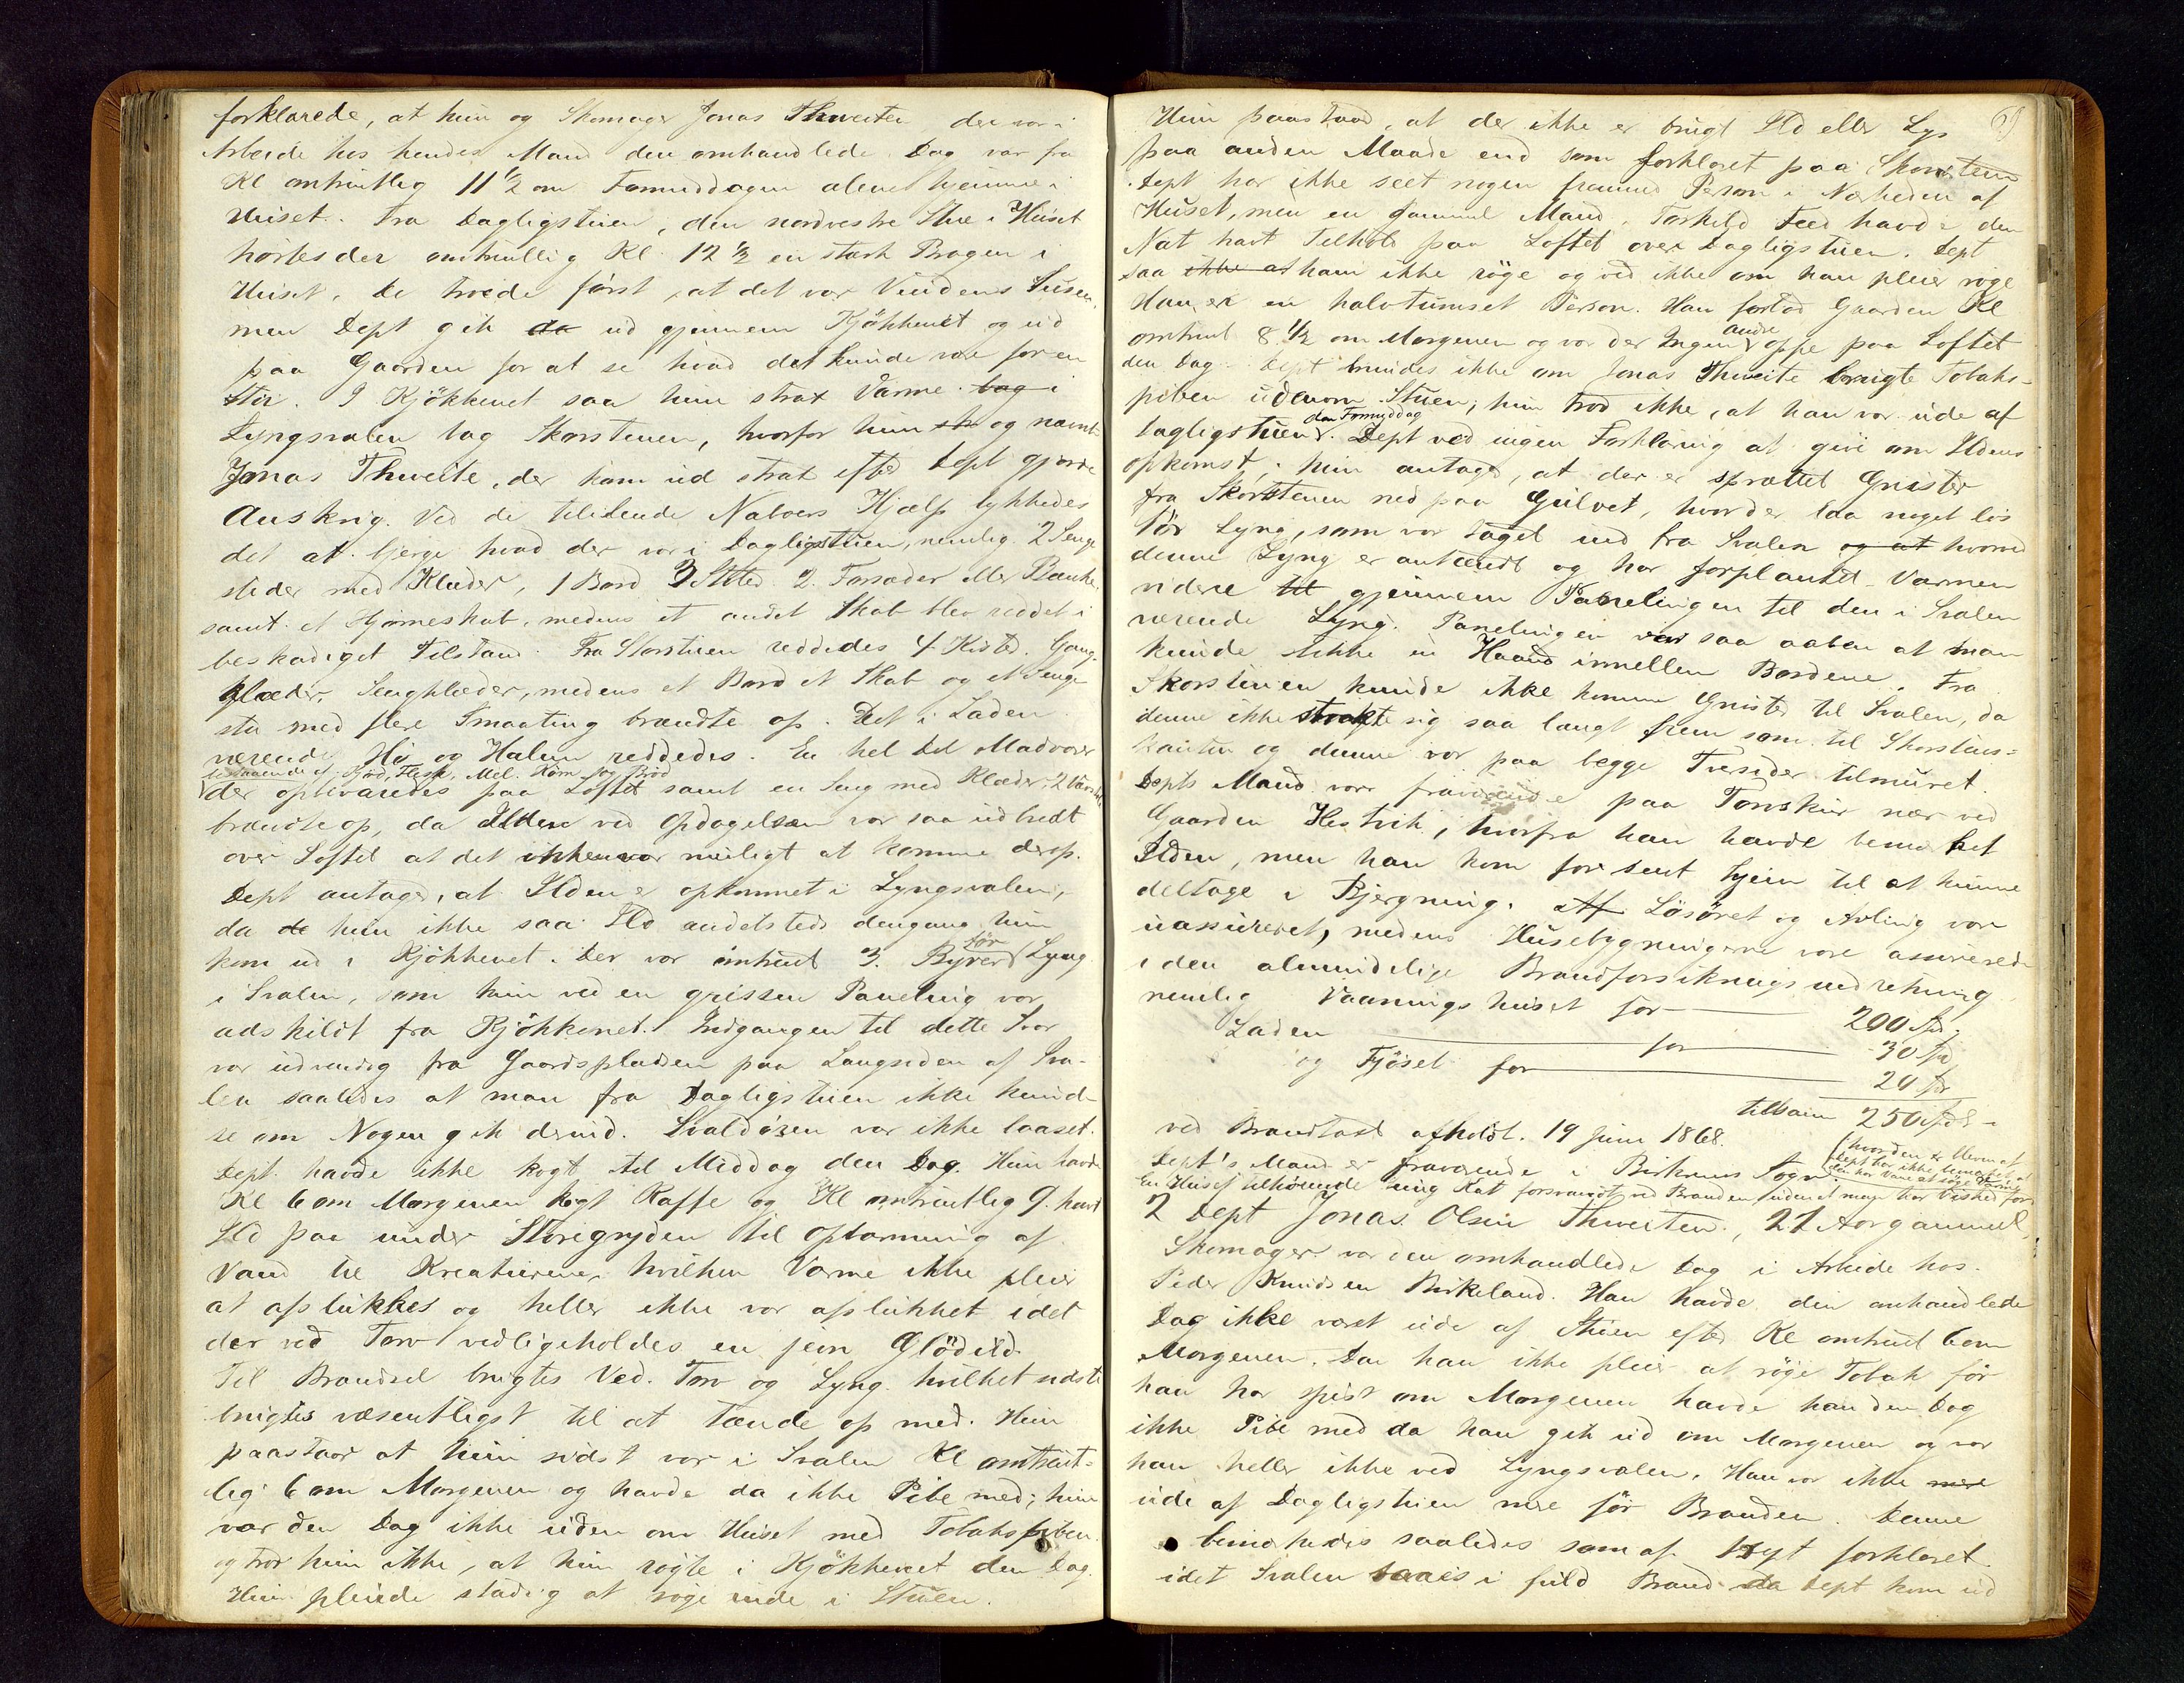 forklarede, at hun og Skomager Jonas Thveiten der var i
Arbeide hos hendes Mand den omhandlede Dag var fra
Kl omtrentlig 11 1/2 om Formiddagen alene hjemme i
Huset. Fra Dagligstuen, den nordvestre Stue i Huset
hørtes der omtrentlig Kl. 12 1/2 en stærk Bragen i
Huset. De troede først, at det var Vindens Susen,
men Dept gik da ud gjennem Kjøkkenet og ud
paa Gaarden for at se hvad det kunde være for en
Støi. I Kjøkkenet saa hun strax Varme bag i
Lyngsvalen bag Skorstenen, hvorfor hun og nævnte
Jonas Thveite, der kom ud strax efter Dept gjorde
Anskrig. Ved de tililende Naboers Hjælp lykkedes
det at bjerge hvad der var i Dagligstuen, nemlig 2 Senge
steder med Klæder, 1 Bord 3 Stole 2 Forsæder eller Bænke
samt et Hjørneskab, medens et andet Skab blev reddet i
beskadiget Tilstand. Fra Storstuen reddedes 4 Kister, Gang-
klæder, Sengklæder, medens et Bord et Skab og et Senge
sted med flere Smaating brændte op. Det i Laden
værende Hø og Halm reddedes. En hel Del Madvarer
bestaaende af Kjød, Flesk, Mel, Korn og Brød
der opbevaredes paa Loftet samt en Seng med Klæder, 2
brændte op, da Ilden ved Opdagelsen var saa udbredt
over Loftet at det ikke var muligt at komme derop.
Dept antager, at Ilden er opkommet i Lyngsvalen,
da de hun ikke saa Ild andetsteds dengang hun
kom ud i Kjøkkenet. Der var omtrent 3 Byrder tør Lyng
i Svalen, som kun ved en grissen Paneling var
adskildt fra Kjøkkenet. Indgangen til dette Svar
var udvendig fra Gaardspladsen paa Langsiden af Sva-
len saaledes at man fra Dagligstuen ikke kunde
se om Nogen gik derind. Svaldøren var ikke laaset.
Dept. havde ikke kogt til Middag den Dag. Hun havde
Kl 6 om Morgenen kogt Kaffe og Kl omtrentlig 9 havt
Ild paa under Storegryden til Opvarmning af
Vand til Kreaturene, hvilken Varme ikke pleier
at aflukkes og heller ikke var aflukket idet
der ved Torv vedligeholdes en jevn Glødild.
Til Brændsel brugtes Ved, Torv og Lyng, hvilket sidste
brugtes væsentligst til at tænde op med. Hun
paastaar at hun sidst var i Svalen Kl omtrent-
lig 6 om Morgenen og havde da ikke Pibe med; hun
var den Dag ikke uden om Huset med Tobakspiben
og tror hun ikke, at hun røgte i Kjøkkenet den Dag.
Hun pleiede stadig at røge inde i Stuen.
69
Hun paastaar, at der ikke er brugt Ild eller Lys
paa anden Maade end som forklaret paa Skorsten
Dept har ikke seet nogen fremmed Person i Nærheden af
Huset, men en gammel Mand, Torkild Feed havde den
Nat havt Tilhold paa Loftet over Dagligstuen. Dept
saa ikke at ham ikke røge og ved ikke om han pleier røge
Han er en halvtumset Person. Han forlod Gaarden Kl
omtrent 8 1/2 om Morgenen og var der Ingen andre oppe paa Loftet
den Dag. Dept mindes ikke om Jonas Thveite brugte Tobaks-
piben udenom Stuen; hun tror ikke, at han var ude af
Dagligstuen den Formiddag. Dept ved ingen Forklaring at give om Ildens
opkomst; hun antager, at der er sprættet Gnister
fra Skorstenen ned paa Gulvet, hvor der laa noget løs
tør Lyng, som var taget ind fra Svalen og at hvorved
denne Lyng er antændt og har forplantet Varmen
videre til gjennem Panelingen til den i Svalen
værende Lyng. Panelingen var saa aaben at man
kunde stikke en Haand imellem Bordene. Fra
Skorstenen kunde ikke komme Gnister til Svalen, da
denne ikke strakte sig saa langt frem som til Skorstens-
kanten og denne var paa begge Tversider tilmuret.
Depts Mand var fraværende paa Torvskur nær ved
Gaarden Hestvik, hvorfra han havde bemærket
Ilden, men han kom for sent hjem til at kunne
deltage i Bjergning. Af Løsøret og Avling var
uassureret, medens Husebygningerne vare assurerede
i den almindelige Brandforsikringsindretning
nemlig Vaaningshuset for 200 Spd.
Laden for 30 Spd
og Fjøset for 20 Spd
tilsam 250 Spd
ved Brandtaxt afholdt 19 Juni 1868.
Dept's Mand er fraværende i Birkrems Sogn.
En Huset tilhørende ung Kat forsvandt ved Branden uden at man har Vished for
(hvor den er bleven af
Dept har ikke bemærket, at
2 Dept Jonas Olsen Thveiten, 21 Aar gammel,
Skomager var den omhandlede Dag i Arbeide hos
Peder Knudsen Birkeland. Han havde den omhandlede
Dag ikke været ude af Stuen efter Kl omtrent 6 om
Morgenen. Da han ikke pleier at røge Tobak før
han har spist om Morgenen havde han den Dag
ikke Pibe med da han gik ud om Morgenen og var
han heller ikke ved Lyngsvalen. Han var ikke mere
ude af Dagligstuen mere før Branden. Denne
bemærkedes saaledes som af 1ste forklaret
idet Svalen saaes i fuld Brand da Dept kom ud